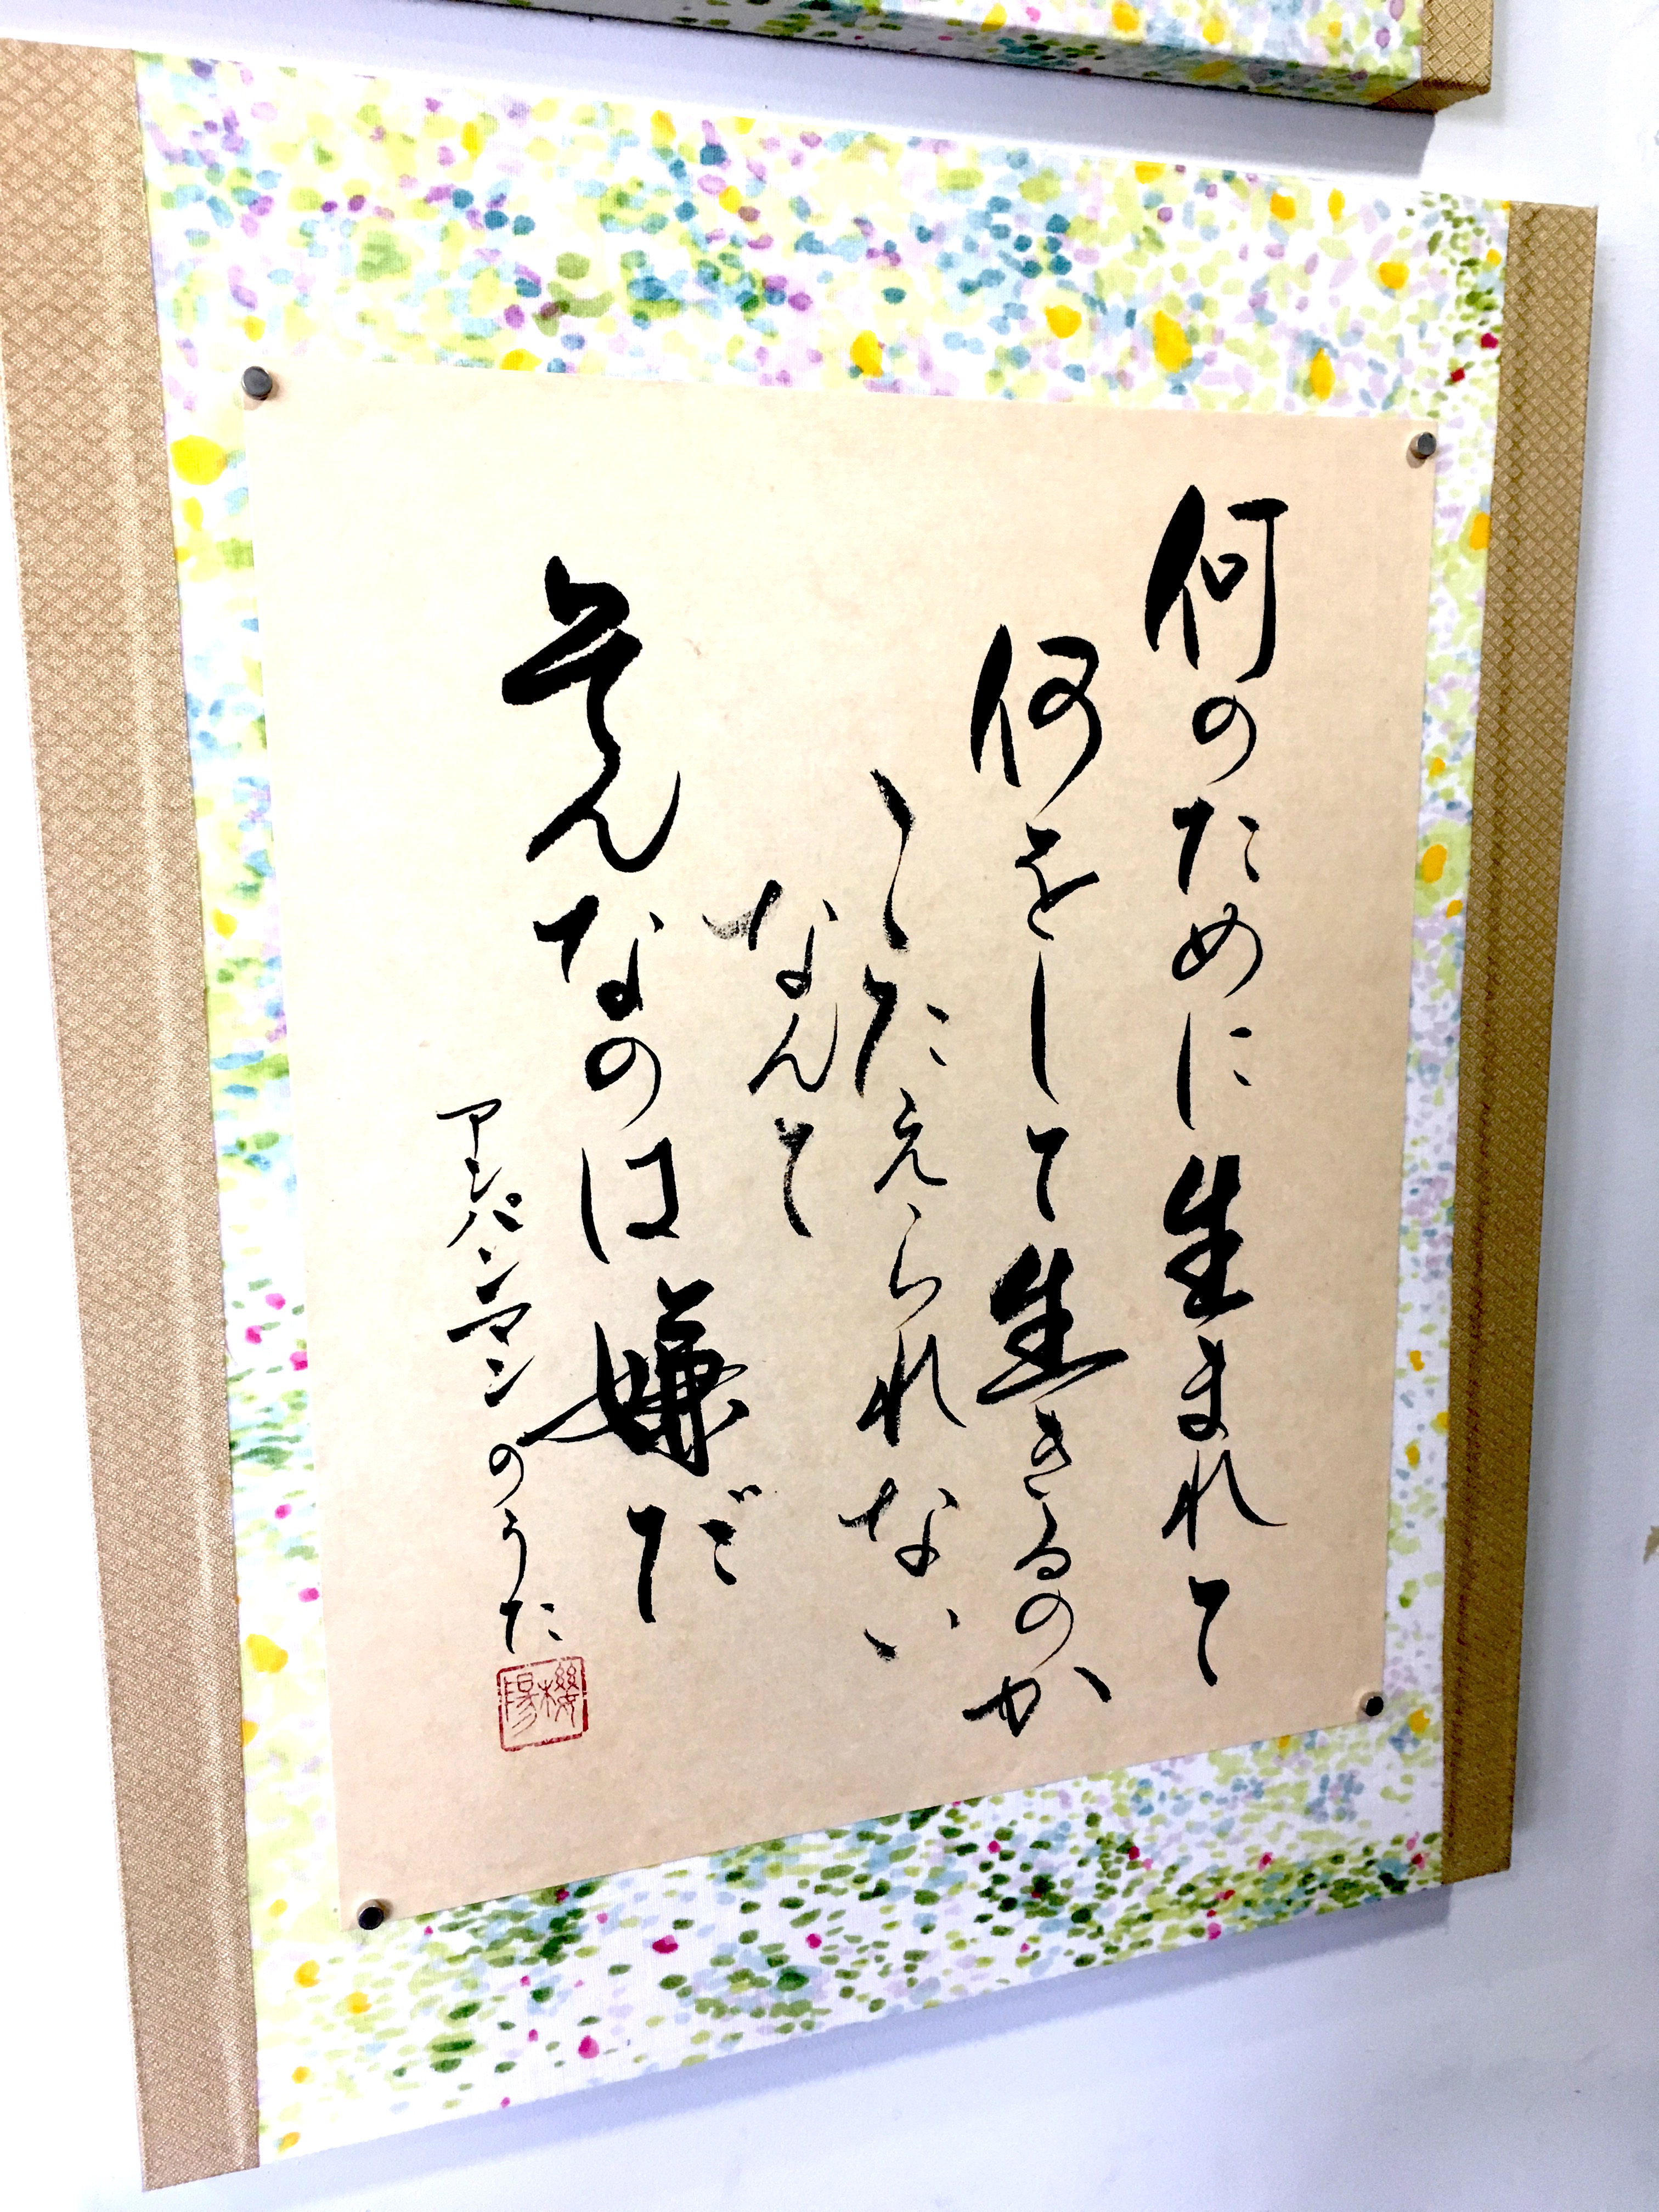 何のために生まれて
何をして生きるのか
こたえられない
なんて
そんなのは嫌だ
アンパンマンのうた
櫻陽